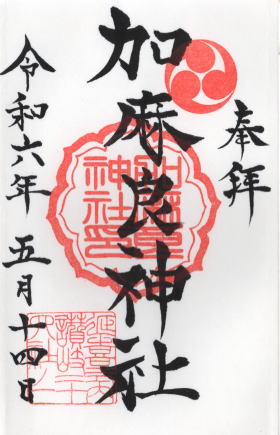 奉拝
加麻良神社
令和六年 五月十四日
加麻良
神社印